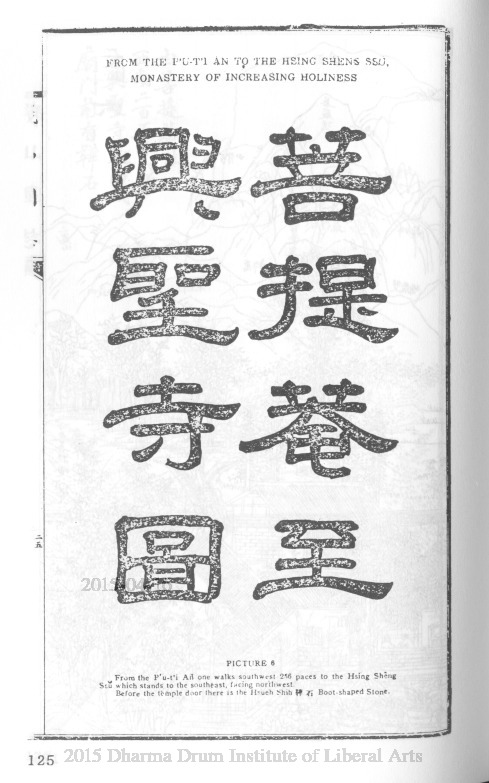 FROM THE P'U-T'I AN TO THE HSING SHENG SSŬ,
MONASTERY OF INCREASING HOLINESS
菩提菴至
興聖寺圖
PICTURE 6
From the P'u-t'i An one walks southwest 256 paces to the Hsing Shêng
Ssŭ which stands to the southeast, facing northwest.
Before the temple door there is the Hsueh Shih 石 Boot-shaped Stone.
125
2015 Dharma Drum Institute of Liberal Arts